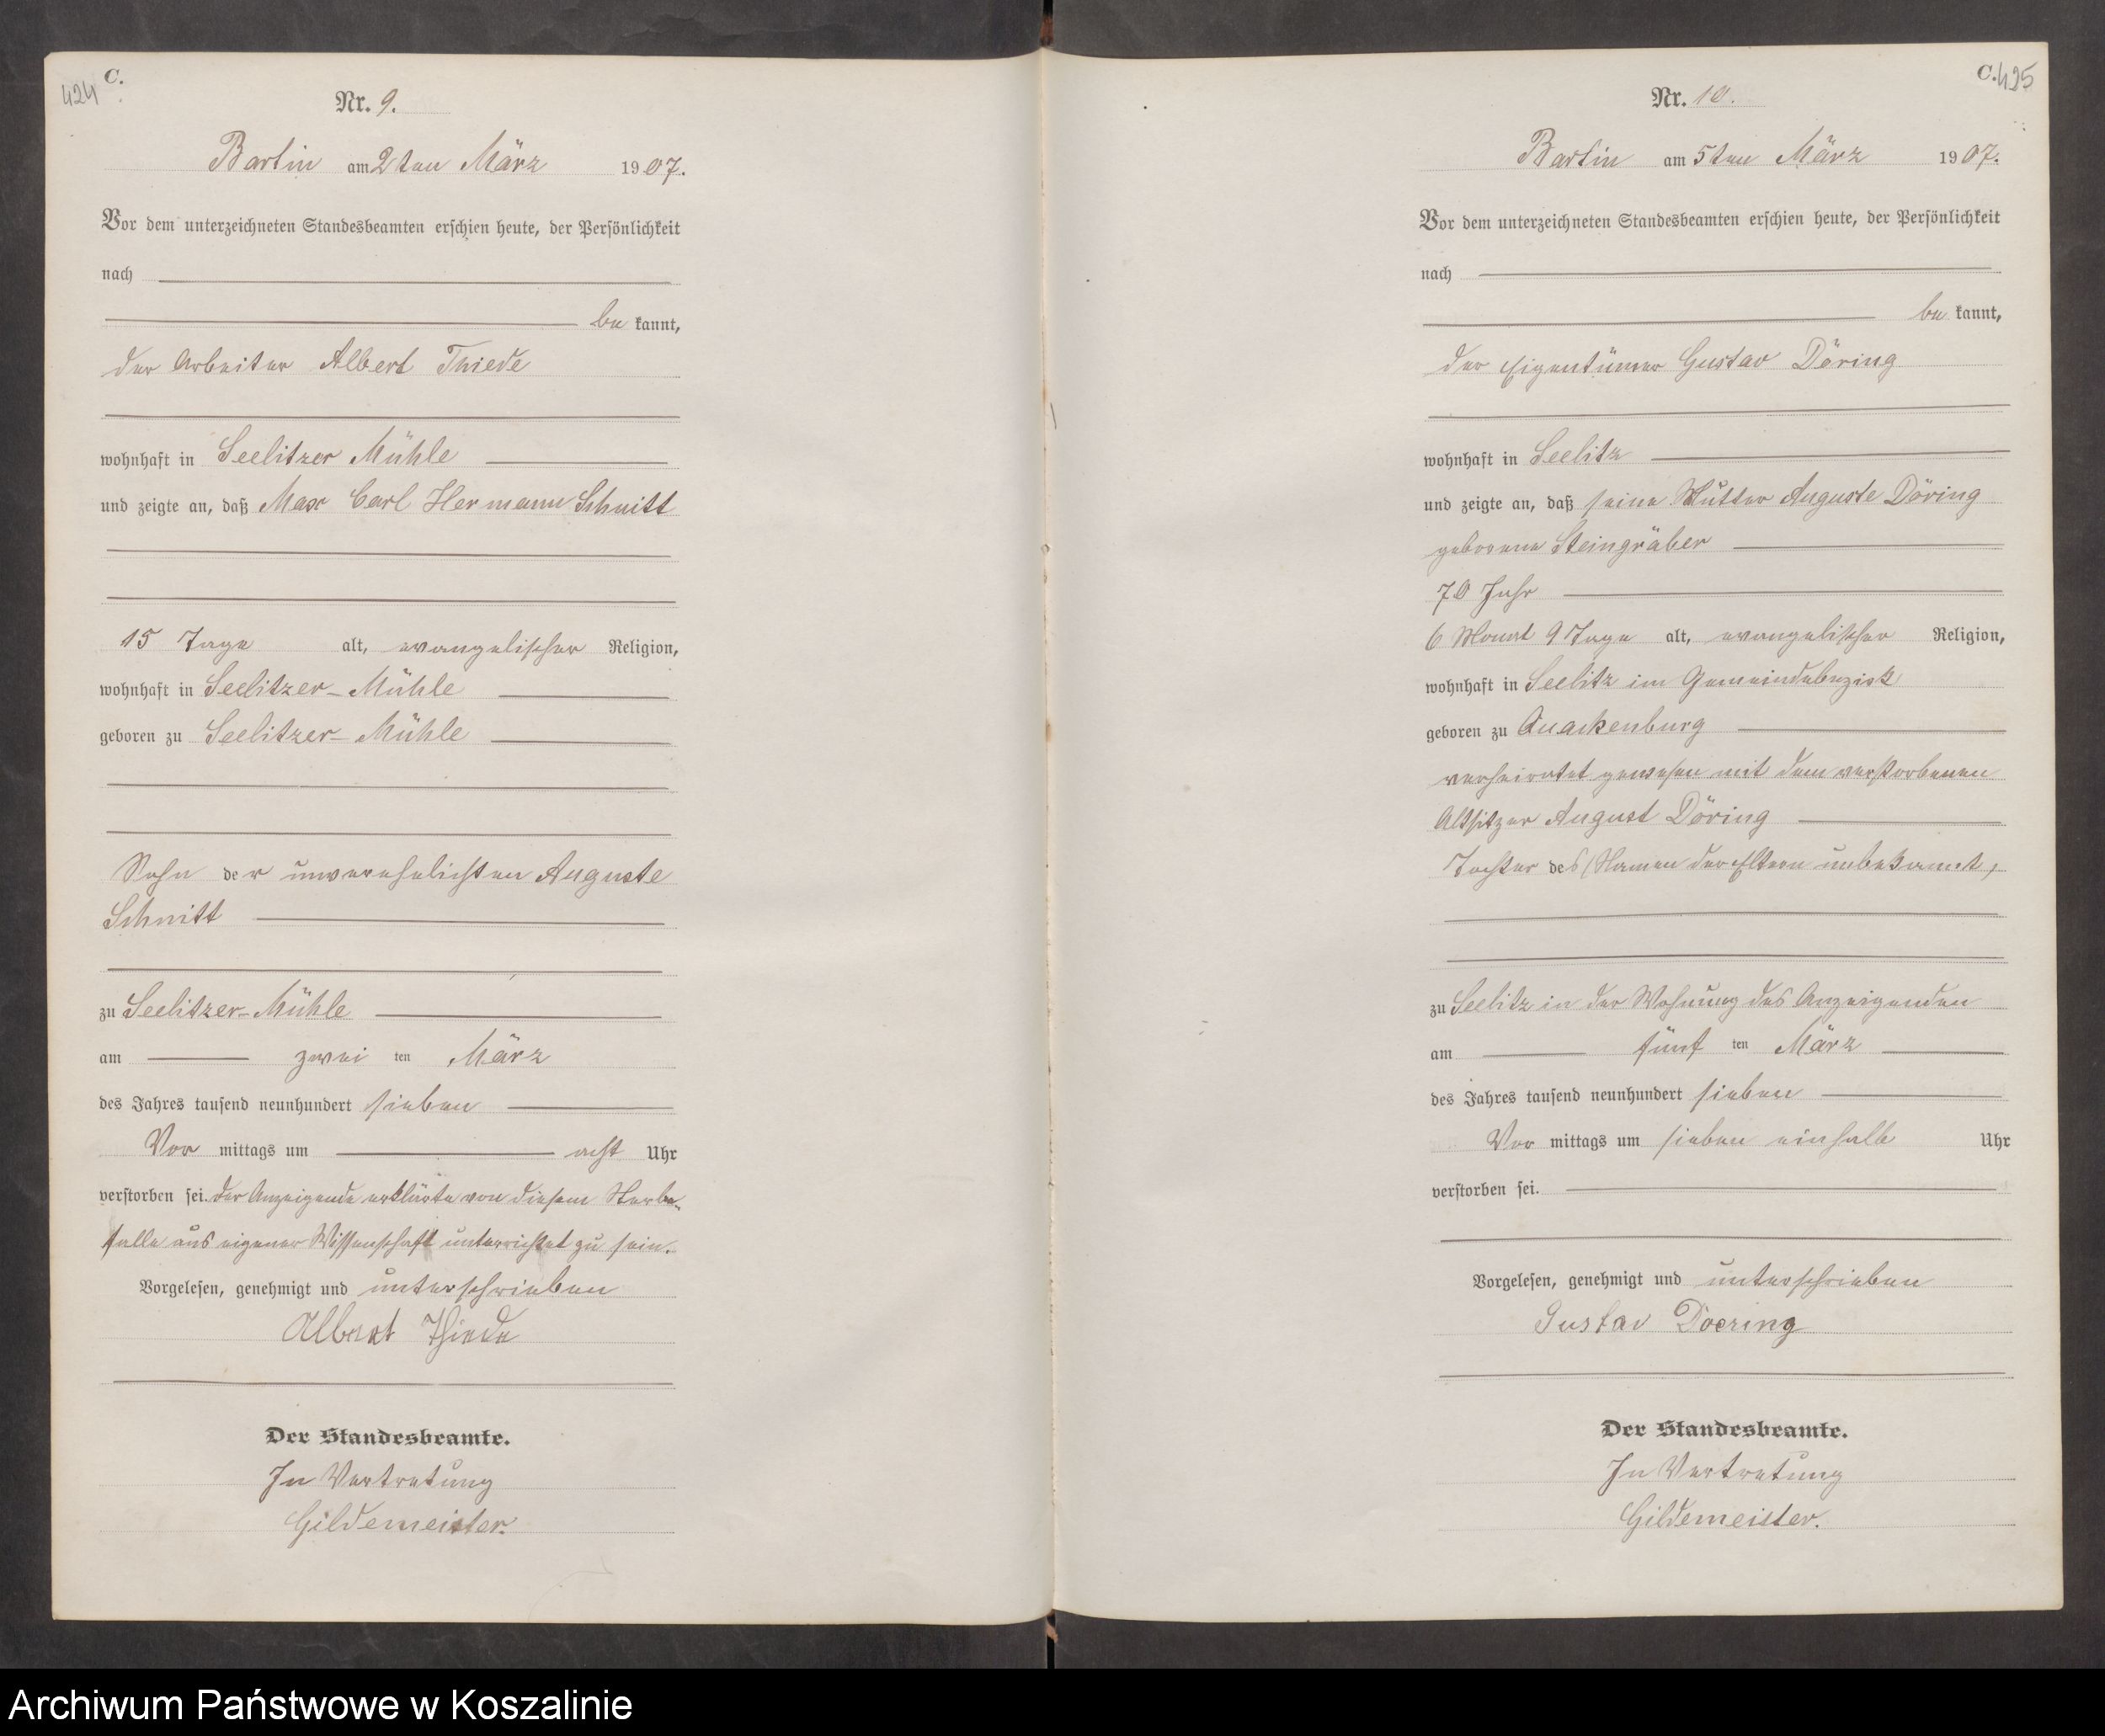 424 C.
Nr. 9.
Bartin am 2ten März 1907.
Vor dem unterzeichneten Standesbeamten erschien heute, der Persönlichkeit
nach
be kannt,
der Arbeiter Albert Thiede
wohnhaft in Seelitzer Mühle
und zeigte an, daß Max Carl Hermann Schnitt
15 Tage alt, evangelischer Religion,
wohnhaft in Seelitzer-Mühle
geboren zu Seelitzer-Mühle
Sohn der unverehelichten Auguste
Schnitt
zu Seelitzer-Mühle
am zwei ten März
des Jahres tausend neunhundert sieben
Vor mittags um acht Uhr
verstorben sei. Der Anzeigende erklärte von diesem Sterbe-
falle aus eigener Wissenschaft unterrichtet zu sein.
Vorgelesen, genehmigt und unterschrieben
Albert Thiede
Der Standesbeamte.
In Vertretung
Gildemeister.
C. 425
Nr. 10.
Bartin am 5ten März 1907.
Vor dem unterzeichneten Standesbeamten erschien heute, der Persönlichkeit
nach
be kannt,
der Eigentümer Gustav Döring
wohnhaft in Seelitz
und zeigte an, daß seine Mutter Auguste Döring
geborene Steingräber
70 Jahr
6 Monat 9 Tage alt, evangelischer Religion,
wohnhaft in Seelitz im Gemeindebezirk
geboren zu Quackenburg
verheiratet gewesen mit dem verstorbenen
Altsitzer August Döring
Tochter des (Namen der Eltern unbekannt)
zu Seelitz in der Wohnung des Anzeigenden
am fünf ten März
des Jahres tausend neunhundert sieben
Vor mittags um sieben einhalb Uhr
verstorben sei.
Vorgelesen, genehmigt und unterschrieben
Gustav Doering
Der Standesbeamte.
In Vertretung
Gildemeister.
Archiwum Państwowe w Koszalinie